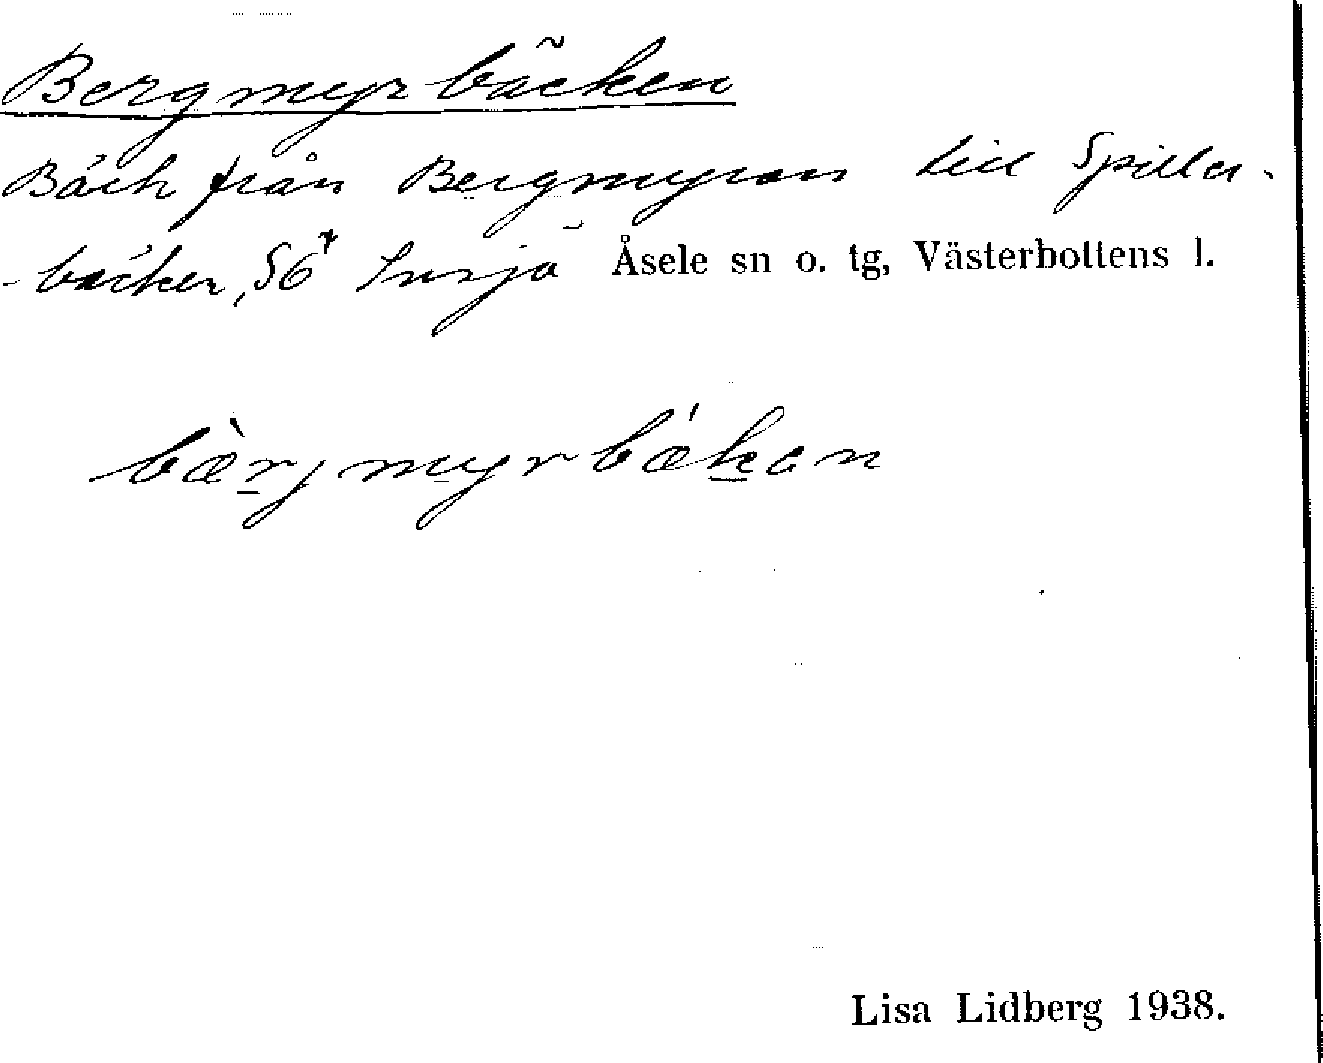 Bergmyrbäcken
Bäck från Bergmyran till Spiller-
-bäcken, S6 Insjö Åsele sn o. tg, Västerbottens l.
bæ̀rjmyrbækən
Lisa Lidberg 1938.